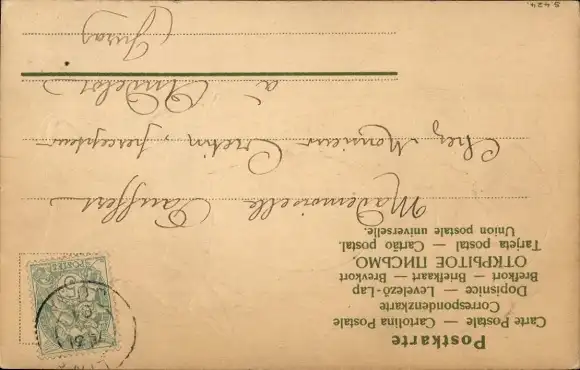 Postkarte
Carte Postale — Cartolina Postale
Correspondenzkarte
Dopisnice — Levelező-Lap
Brefkort — Briefkaart — Brevkort
ОТКРЫТОЕ ПИСЬМО.
Tarjeta postal — Cartão postal.
Union postale universelle.
Mademoiselle Cauffert
Chez Monsieur Cretin, percepteur
à Andelot
(Jura)